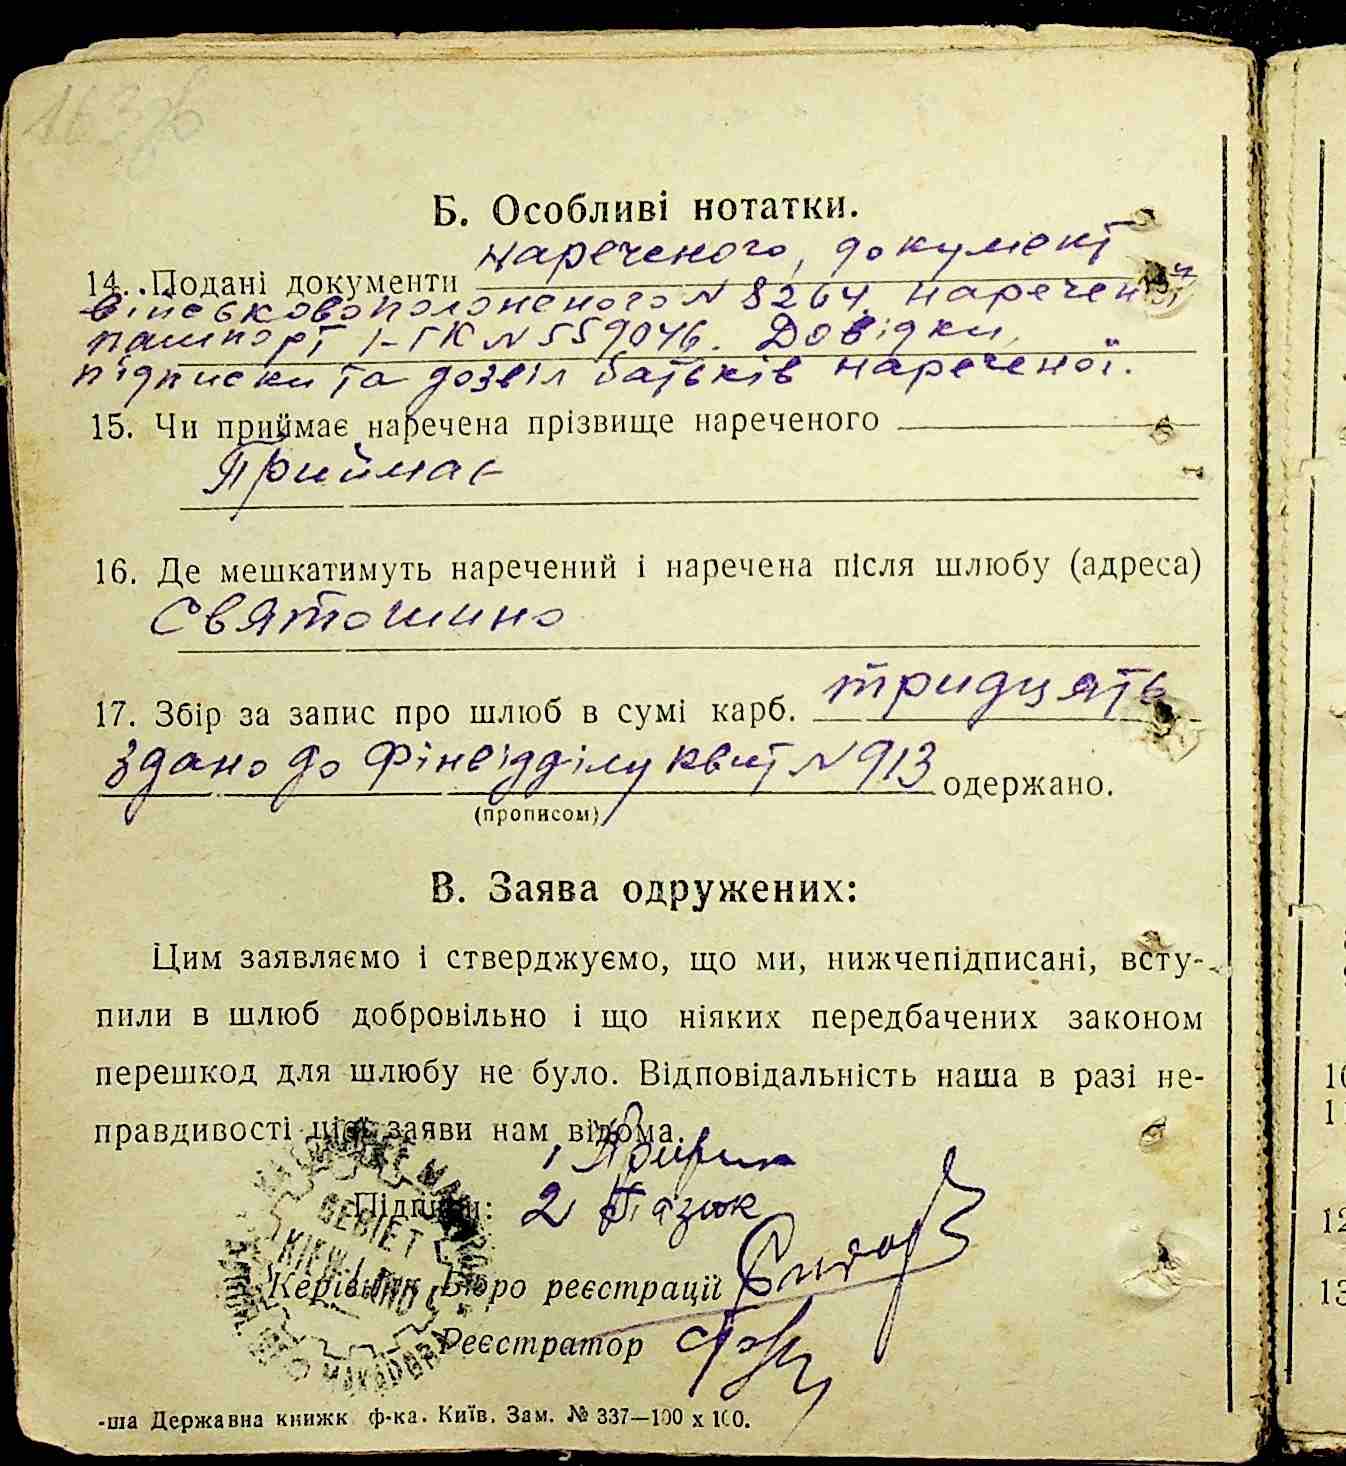 163зв
Б. Особливі нотатки.
нареченого, документ
14. Подані документи
військовополоненого N 8264, нареченої
пашпорт І-ГК N 559046. Довідки,
підписки та дозвіл батьків нареченої.
15. Чи приймає наречена прізвище нареченого
Приймає
16. Де мешкатимуть наречений і наречена після шлюбу (адреса)
Святошино
17. Збір за запис про шлюб в сумі карб. тридцять
здано до Фінвідділу квит N 913 одержано.
(прописом)
В. Заява одружених:
Цим заявляємо і стверджуємо, що ми, нижчепідписані, всту-
пили в шлюб добровільно і що ніяких передбачених законом
перешкод для шлюбу не було. Відповідальність наша в разі не-
правдивості цієї заяви нам відома.
1
Підписи: 2
GEBIET
KIEW
Керівник Бюро реєстрації
Реєстратор
-ша Державна книжк ф-ка. Київ. Зам. № 337—100 х 100.
10
11
12
13